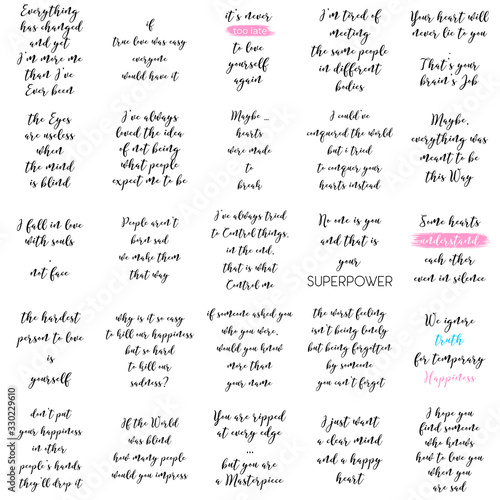 Everything
has changed
and yet
I'm more me
than I've
Ever been
if
true love was easy
everyone
would have it
it's never
too late
to love
yourself
again
I'm tired of
meeting
the same people
in different
bodies
Your heart will
never lie to you
.
That's your
brain's Job
the Eyes
are useless
when
the mind
is blind
I've always
loved the idea
of not being
what people
expect me to be
Maybe ...
hearts
were made
to
break
I could've
conquered the world
but i tried
to conquer your
hearts instead
Maybe,
everything was
meant to be
this Way
I fall in love
with souls
.
not face
People aren't
born sad
we make them
that way
I've always tried
to Control things,
in the end,
that is what
Control me
No one is you
and that is
your
SUPERPOWER
Some hearts
understand
each other
even in silence
the hardest
person to love
is
yourself
why is it so easy
to kill our happiness
but so hard
to kill our
sadness?
if someone asked you
who you were,
would you know
more than
your name
the worst feeling
isn't being lonely
but being forgotten
by someone
you can't forget
We ignore
Truth
for temporary
Happiness
don't put
your happiness
in other
people's hands
they'll drop it
If the World
was blind
how many people
would you impress
You are ripped
at every edge
...
but you are
a Masterpiece
I just want
a clear mind
and a happy
heart
I hope you
find someone
who knows
how to love you
when you
are sad
Adobe Stock | #330229610